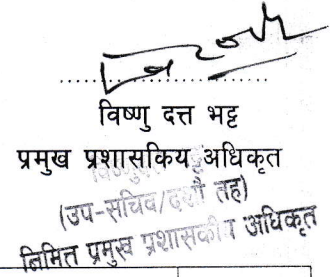 विष्णु दत्त भट्ट
प्रमुख प्रशासकिय अधिकृत
(उप-सचिव/दशौ तह)
निमित्त प्रमुख प्रशासकीय अधिकृत